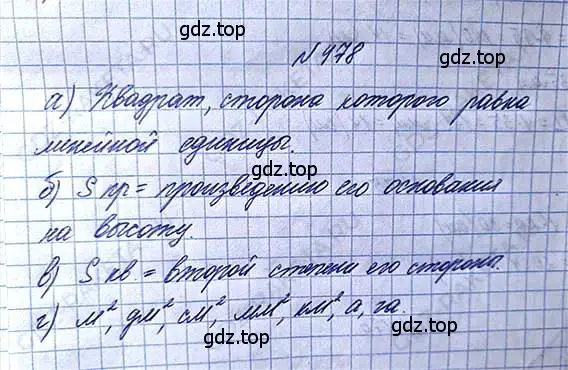 gdz.top
№ 478
gdz.top
а) Квадрат, сторона которого равна
линейной единицы.
gdz.top
б) S пр = произведению его основания
на высоту.
в) S кв. = второй степени его сторона.
г) м², дм², см², мм², км², а, га.
gdz.top